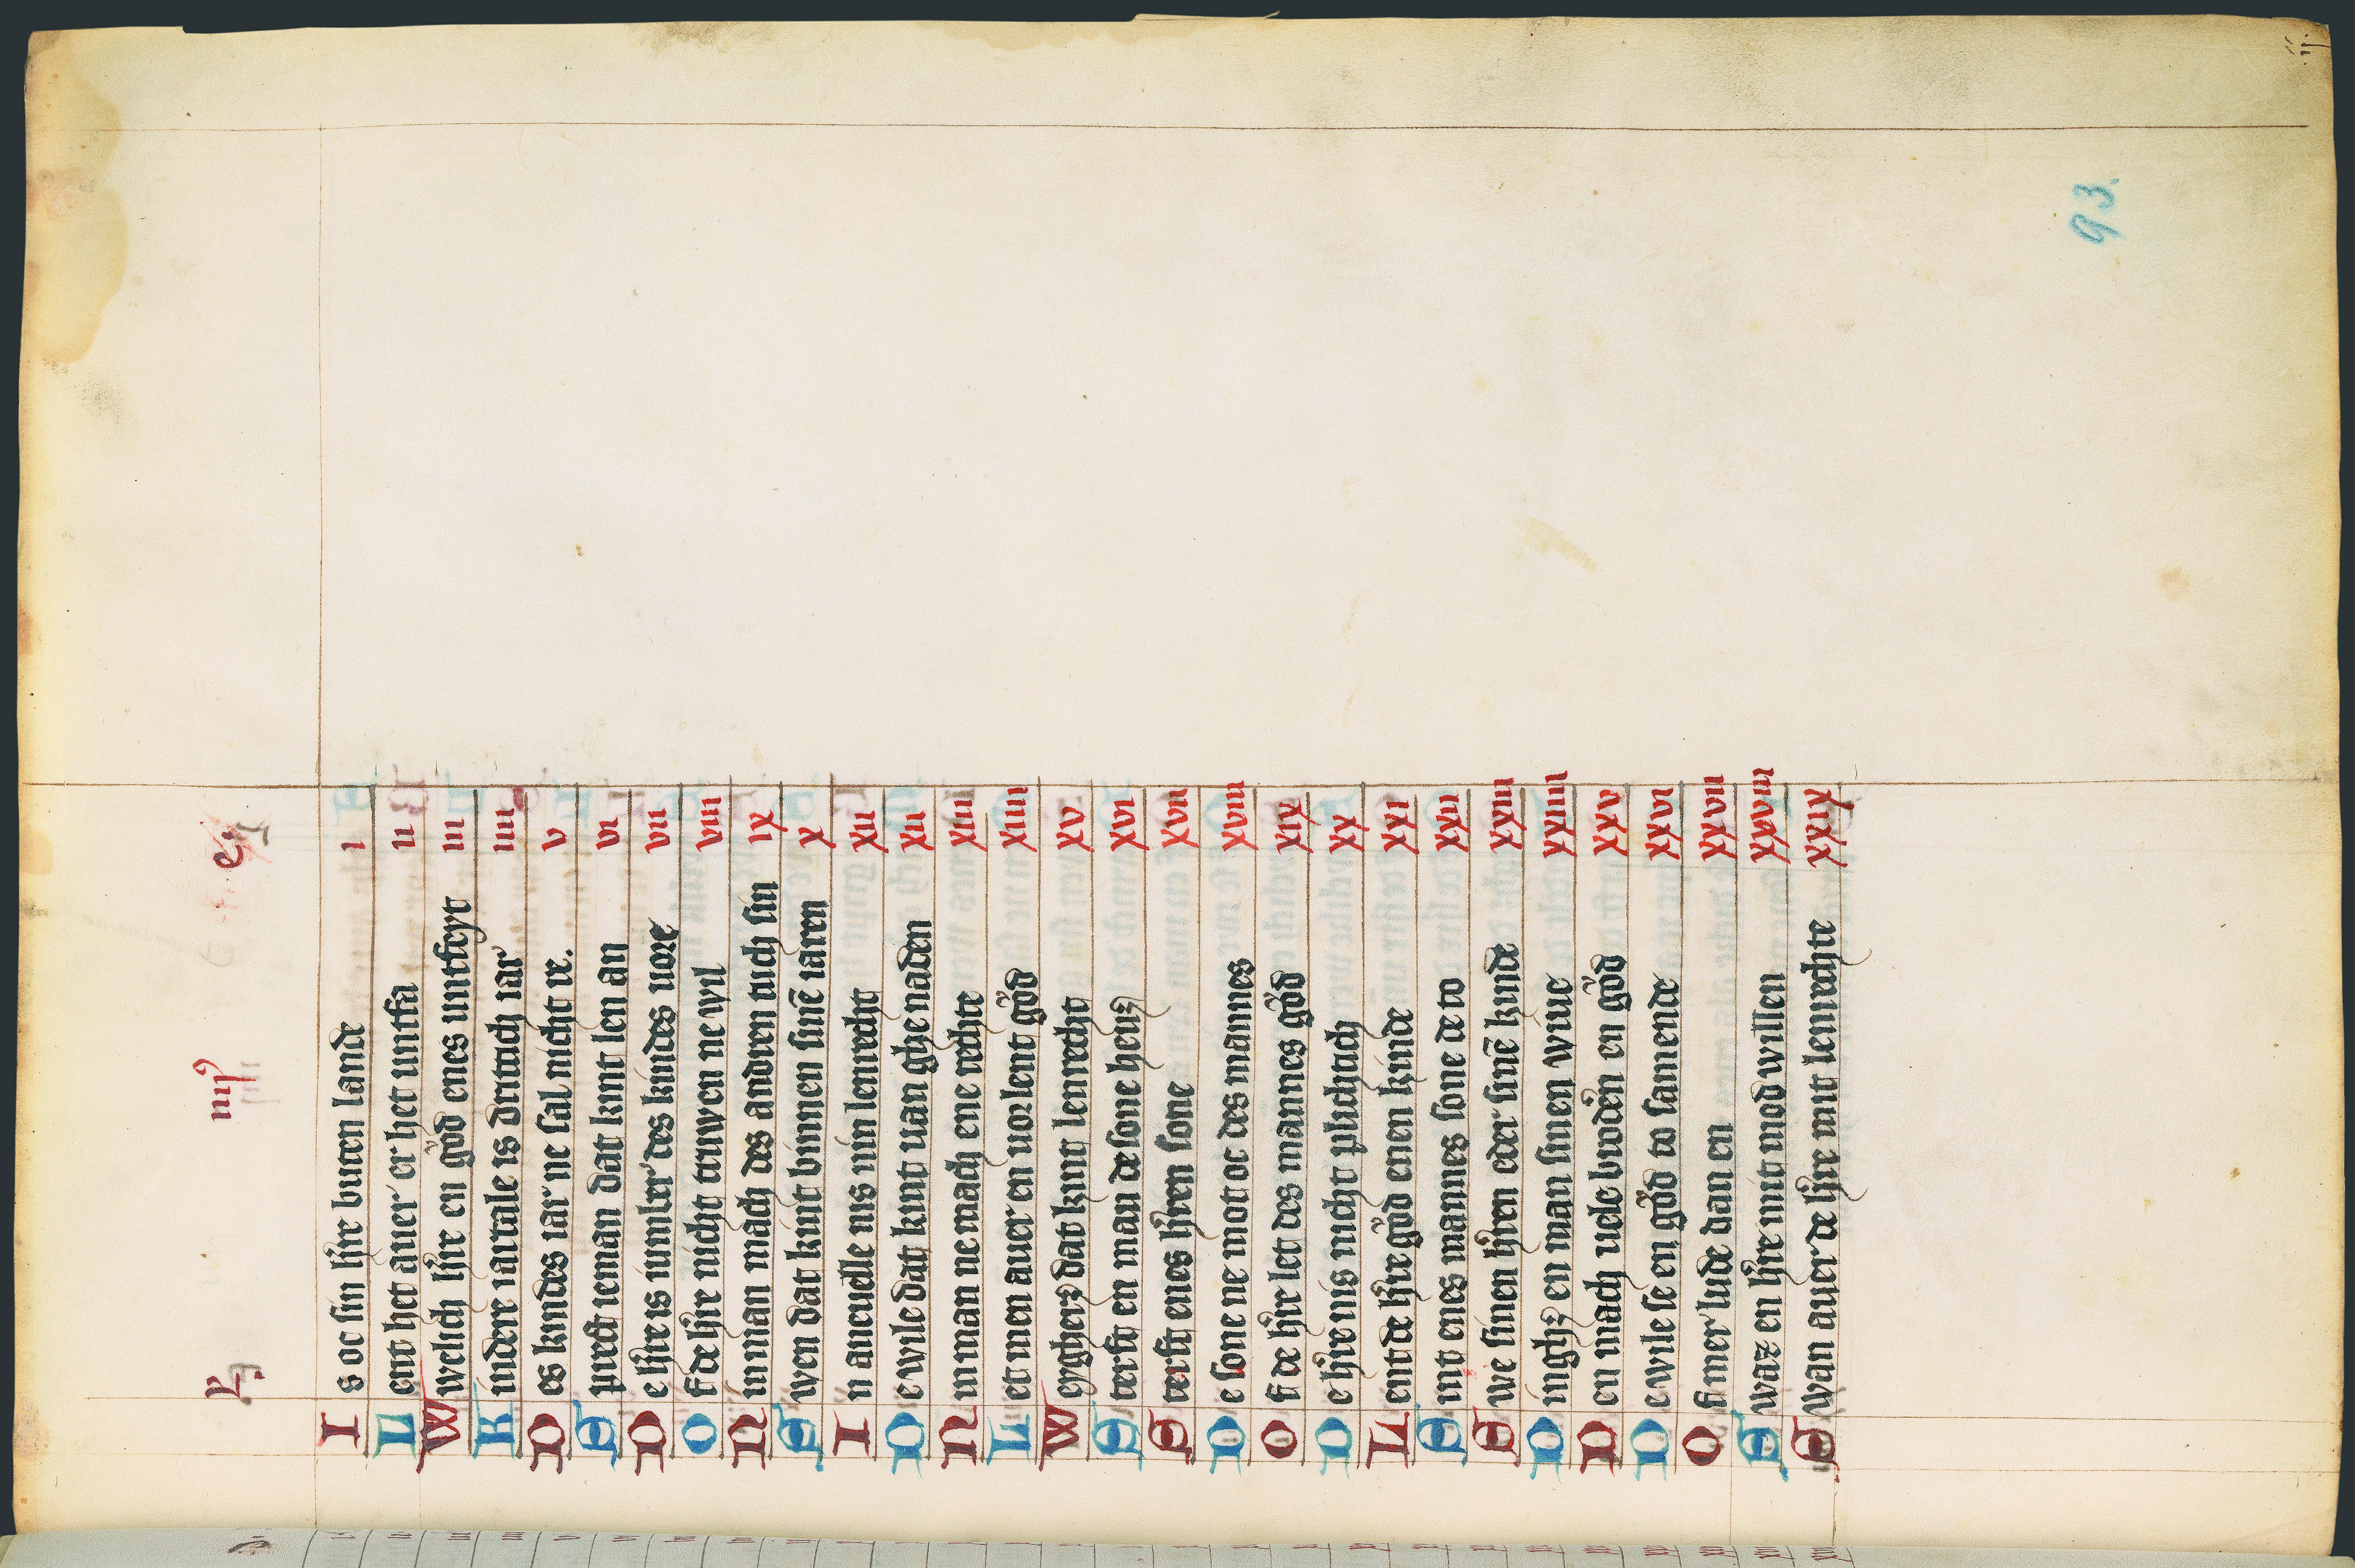 L iiij c.
I s oc sin h're buten lande i
L ent het auer' er het untfa ii
W welich h're en gůd enes untfeyt iii
K indere iartale is drutach iar' iiii
D es kindes iar' ne sal nicht re. v
A uprest ieman dat kint len an vi
D e h're is iumler' des kindes uore vii
O fte h're nicht truwen ne wil viii
N in man mach des andren tuch sin ix
A wen dat kint binnen sinē iaren x
I n aneuelle nis nin lenrecht xii
D e wile dat kint uan ghenaden xii
N in man ne mach ene rechte xiii
L et men auer en uorlent gůd xiiii
W eygherz dat kint lenrecht xv
A terst en man de sone heuz xvi
A terst enes h'ren sone xvii
D e sone ne mot oc des mannes xviii
O ft de h're let des mannes gůd xix
D e h're nis nicht plichtich xx
L ent de h're gůd enen kinde xxi
A int enes mannes sone de to xxii
A we sinen h'ren eder sinē kinde xxiii
D inghz en man sinen wiue xxiiii
D en mach uele brodē'n en gůd xxv
D e wile se en gůd to samende xxvi
O ft mer' lude dan en xxvii
A waz en h're mit mod willen xxviii
A wan auer de h're mit lenrechte xxix
93.